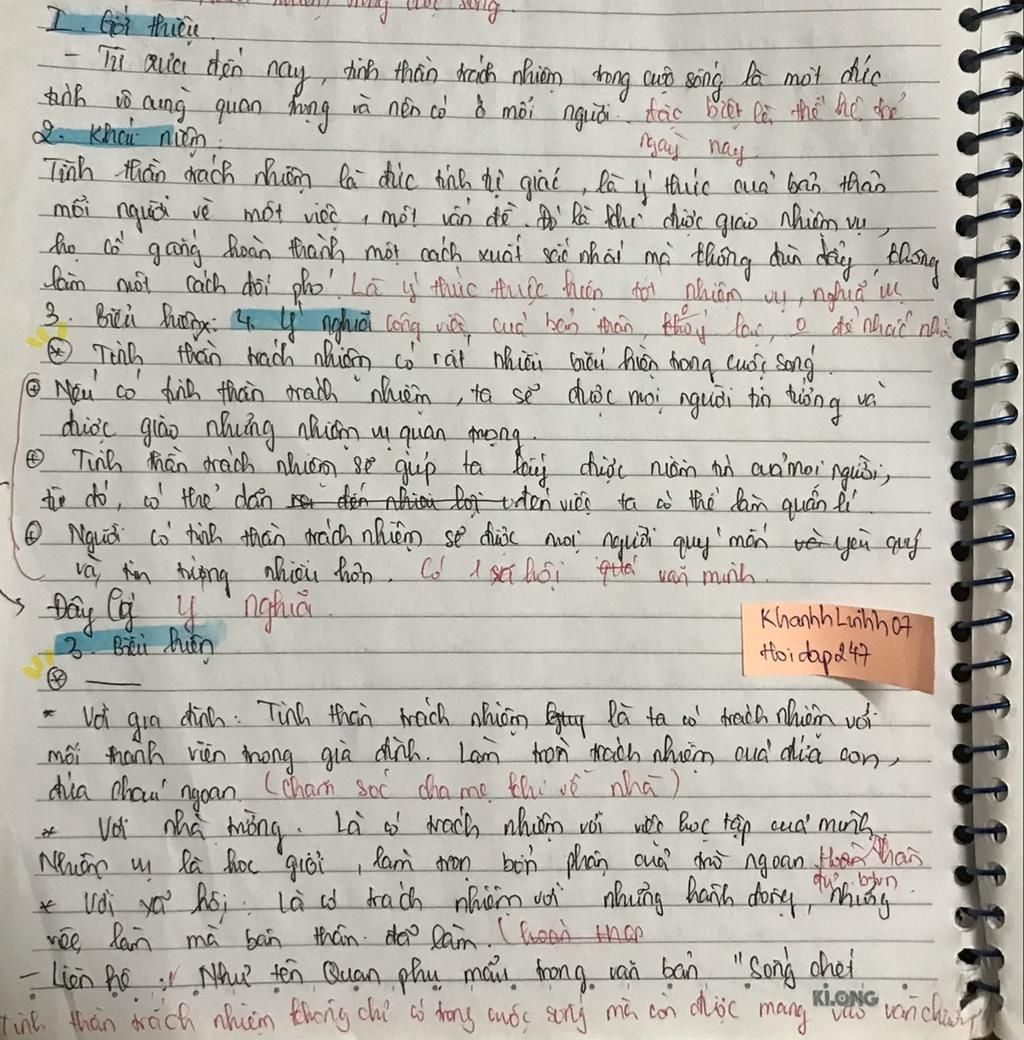 trong cuộc sống.
I. Giới thiệu.
- Từ xưa đến nay, tinh thần trách nhiệm trong cuộc sống là một đức
tính vô cùng quan trọng và nên có ở mỗi người. đặc biệt là thế hệ trẻ
ngày nay
2. Khái niệm:
Tinh thần trách nhiệm là đức tính tự giác, là ý thức của bản thân
mỗi người về một việc, một vấn đề. Đó là khi được giao nhiệm vụ,
họ cố gắng hoàn thành một cách xuất sắc nhất mà không đùn đẩy, không
làm một cách đối phó. Là ý thức thực hiện tốt nhiệm vụ, nghĩa vụ
3. Biểu hiện: 4. Ý nghĩa công việc của bản thân, để nhắc nhở
⊛ Tinh thần trách nhiệm có rất nhiều biểu hiện trong cuộc sống.
⊕ Nếu có tinh thần trách nhiệm, ta sẽ được mọi người tin tưởng và
được giao những nhiệm vụ quan trọng.
⊕ Tinh thần trách nhiệm sẽ giúp ta lấy được niềm tin của mọi người,
từ đó, có thể dẫn đến việc ta có thể làm quản lí.
⊕ Người có tinh thần trách nhiệm sẽ được mọi người quý mến yêu quý
và, tin tượng nhiều hơn. Có 1 xã hội văn minh.
→ Đây là ý nghĩa.
3. Biểu hiện
⊛ ——
* Với gia đình: Tinh thần trách nhiệm là ta có trách nhiệm với
mỗi thành viên trong gia đình. Làm tròn trách nhiệm của đứa con,
đứa cháu ngoan. (Chăm sóc cha mẹ khi về nhà)
* Với nhà trường. Là có trách nhiệm với việc học tập của mình.
Nhiệm vụ là học giỏi, làm tròn bổn phận của trò ngoan. Hoàn thành
* Với xã hội: Là có trách nhiệm với những hành động, những
việc làm mà bản thân đã làm. (hoàn
- Liên hệ: Như tên Quan phụ mẫu trong văn bản "Sống chết
Tinh thần trách nhiệm không chỉ có trong cuộc sống mà còn được mang vào văn chương
KhanhhLinhh07
Hoidap247
KLONG